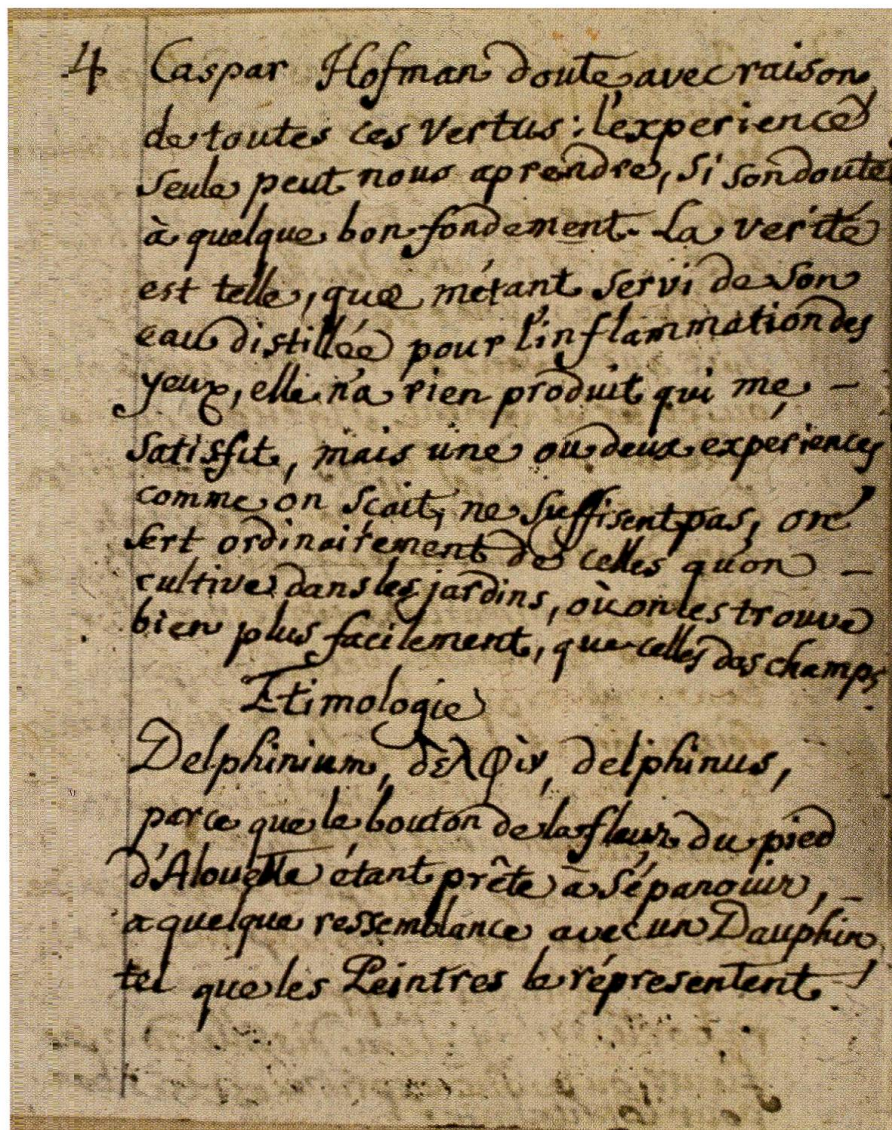 4 Caspar Hofman doute avec raison
de toutes ces vertus : l'experience
seule peut nous aprendre, si son doute
à quelque bon fondement. La verité
est telle, que m'étant servi de son
eau distillée pour l'inflammation des
yeux, elle n'a rien produit qui me –
satisfit, mais une ou deux expériences
comme on scait, ne suffisent pas, on
sert ordinairement de celles qu'on –
cultive dans les jardins, où on les trouve
bien plus facilement, que celles des champs
Etimologie
Delphinium, δελφὶν, delphinus,
parce que le bouton de la fleur du pied
d'Alouette étant prête à s'épanouir, –
a quelque ressemblance avec un Dauphin
tel que les Peintres le réprésentent